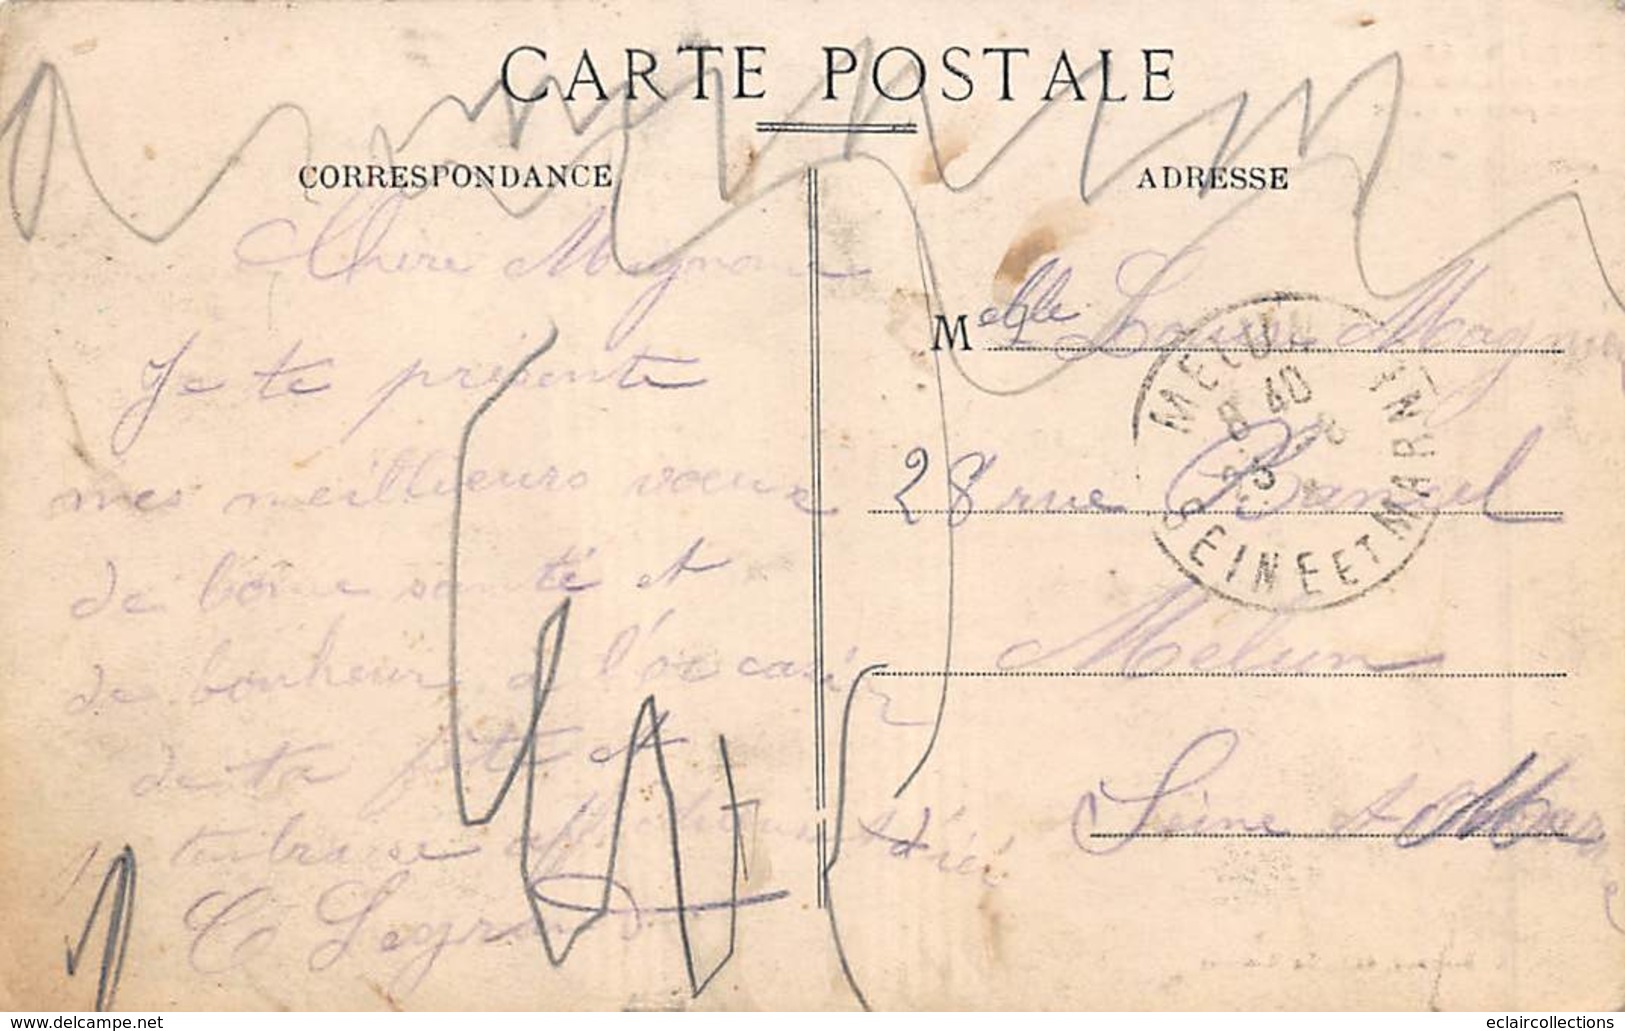 CARTE POSTALE
CORRESPONDANCE
ADRESSE
Chère Mignonne
Je te présente
mes meilleurs vœux
de bonne santé et
de bonheur a l'occasion
de ta fête et
t'embrasse affectueust d'ici
C Legrand
Melle Louise Magnin
28 rue Bancel
Melun
Seine et Marne
MELUN
8 40
25 - 8
SEINE ET MARNE
delcampe.net
eclaircollections